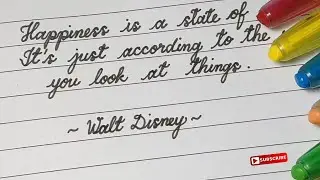 Happiness is a state of
It's just according to the
you look at things.
~ Walt Disney ~
SUBSCRIBE